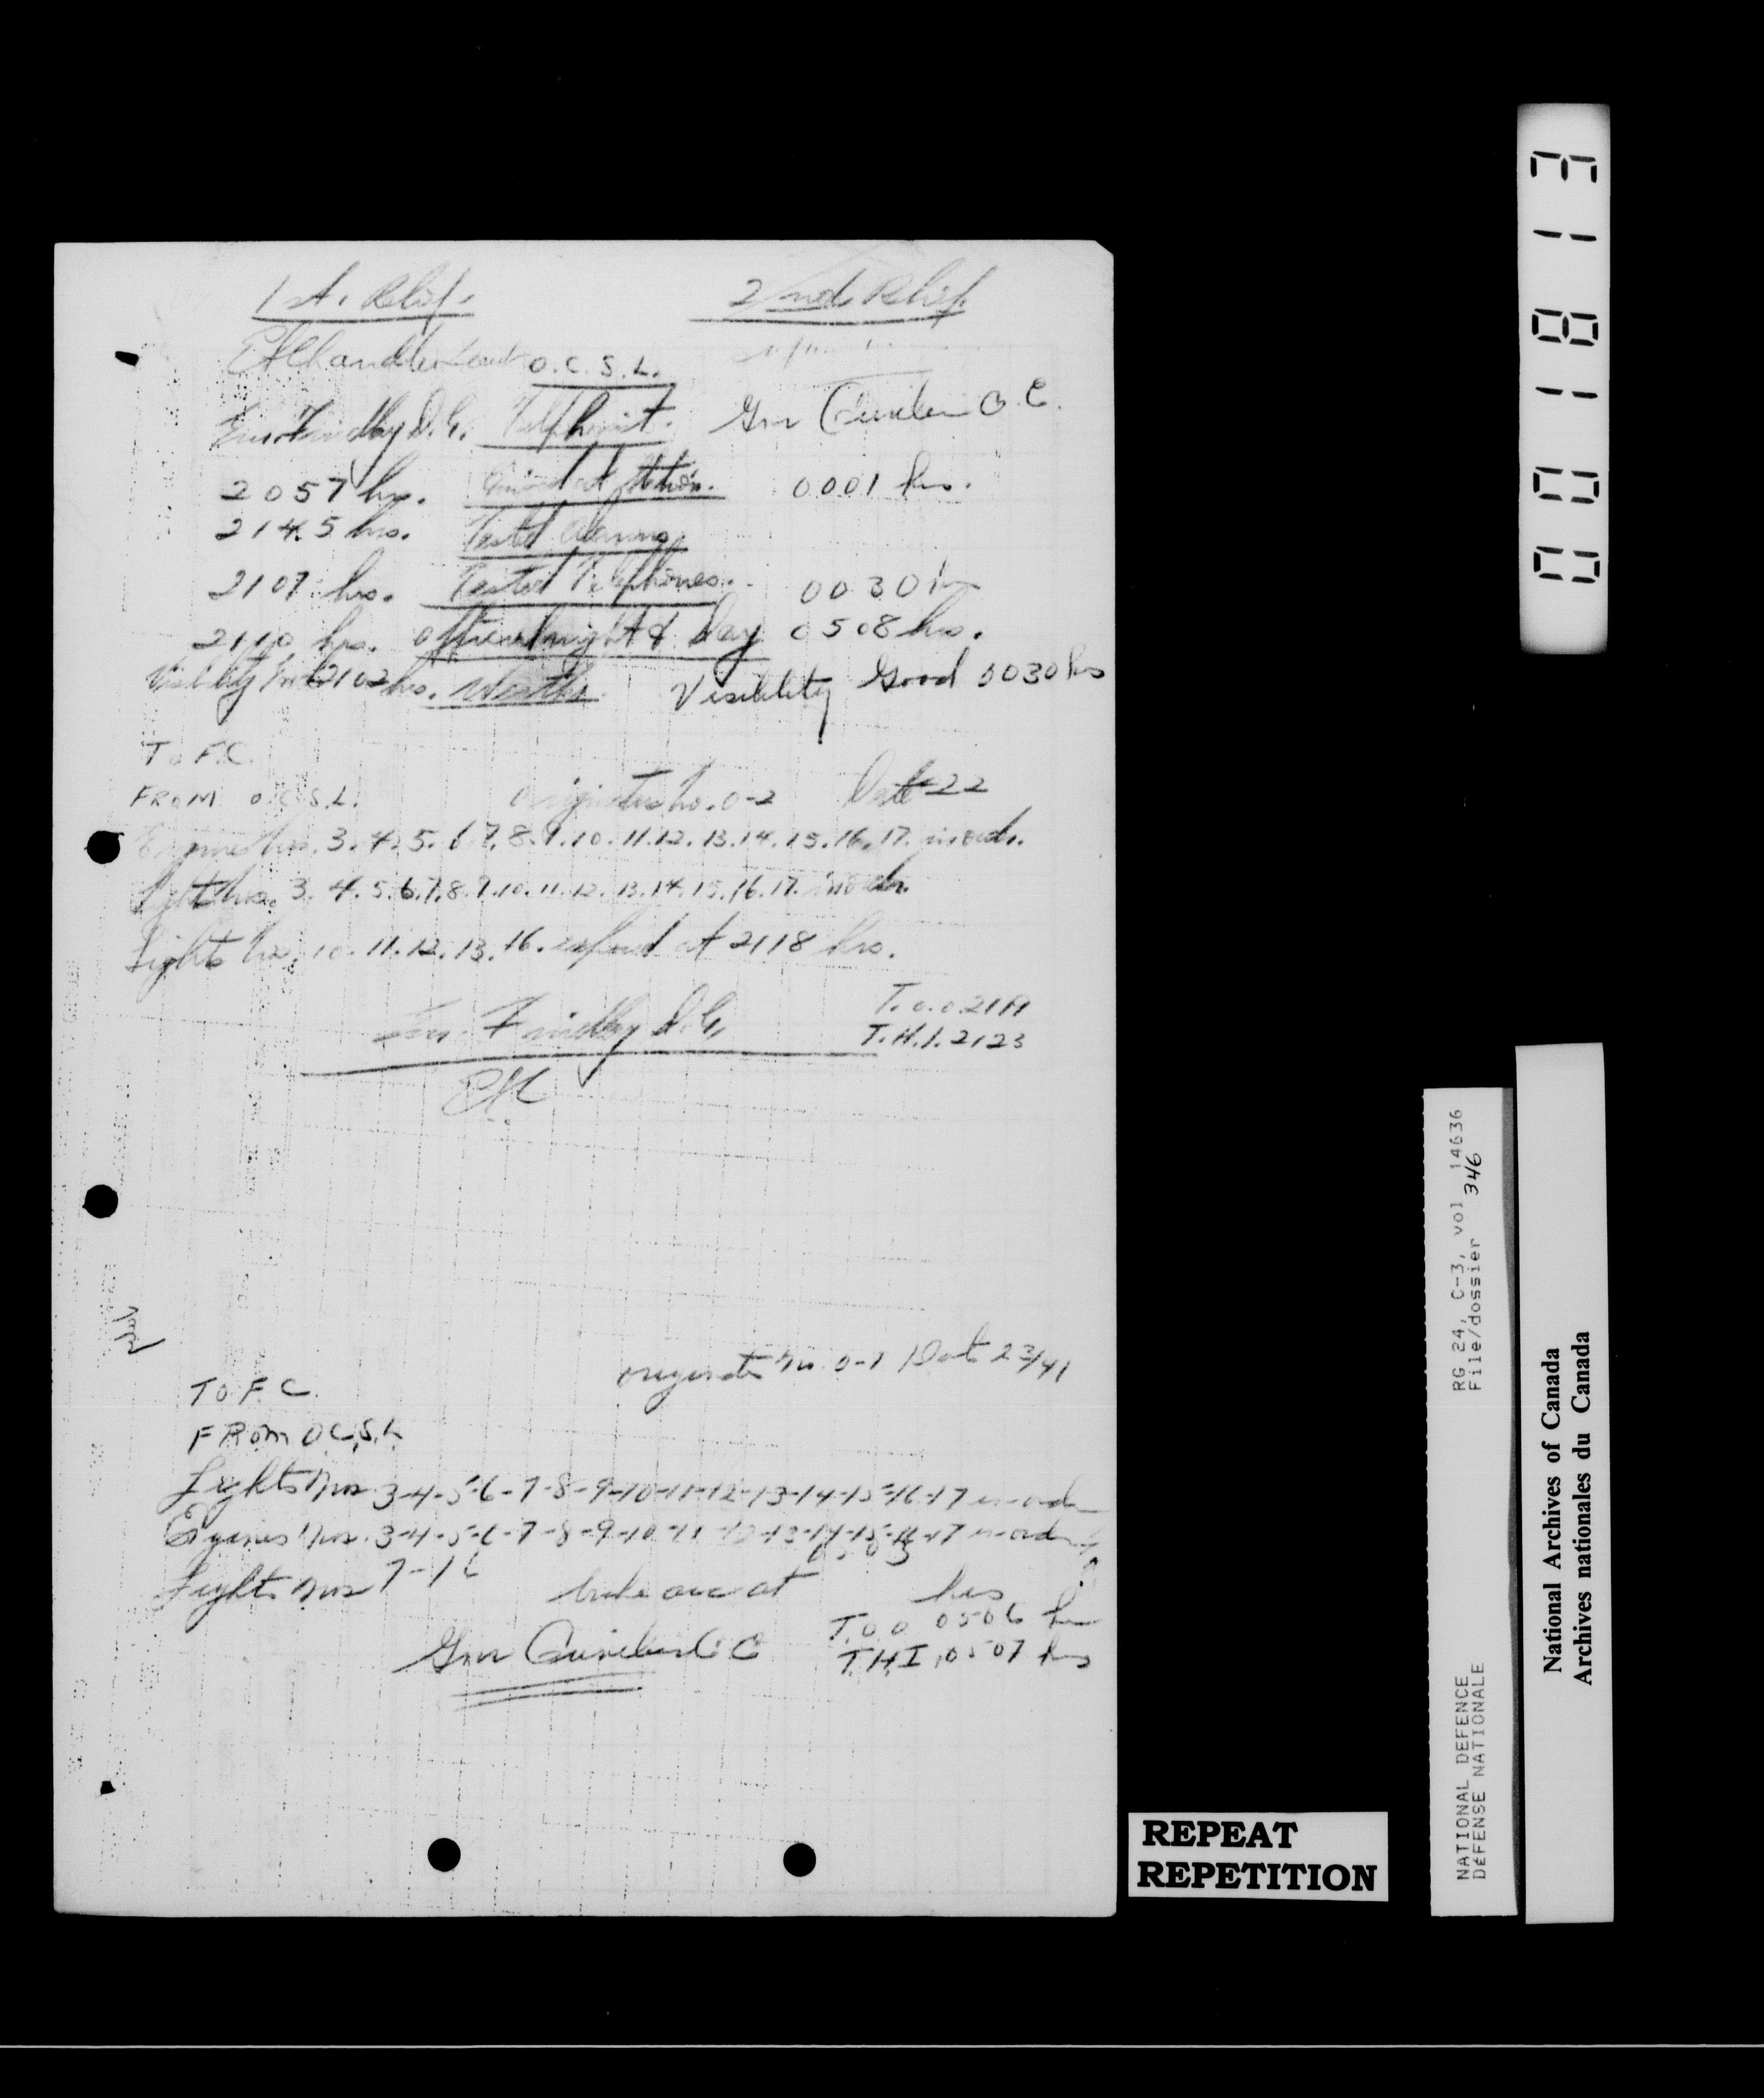 1st. Relief. 2nd. Relief.
Chandler Lieut O.C.S.L.
Gnr. Findlay D.G. Telephonist. Gnr C.C.
2057 hrs. Arrived at station. 0001 hrs.
2145 hrs. Tested Alarms
2107 hrs. Tested Telephones. 0030 hrs
2110 hrs. night & day 0508 hrs.
Visibility 2102 hrs. Weather. Visibility Good 0030 hrs
To F.C.
FROM O.C.S.L. Originators No. 0-2 Date 22
Engines Nos. 3. 4. 5. 6 7. 8. 9. 10. 11. 12. 13. 14. 15. 16. 17. in order.
Lights Nos. 3. 4. 5. 6. 7. 8. 9. 10. 11. 12. 13. 14. 15. 16. 17. in order.
Lights Nos. 10. 11. 12. 13. 16. exposed at 2118 hrs.
Gnr. Findlay D.G. T.O.O. 2119
T.H.I. 2123
Originators No. 0-1 Date 23/41
TO F.C.
FROM O.C.S.L
Lights Nos 3-4-5-6-7-8-9-10-11-12-13-14-15-16-17 in order
Engines Nos. 3-4-5-6-7-8-9-10-11-12-13-14-15-16-17 in order
Lights Nos 7-16 arc at 0503 hrs
T.O.O 0506 hrs
Gnr C.C T.H.I. 0507 hrs
001813
RG 24, C-3, vol 14636
File/dossier 346
NATIONAL DEFENCE
DÉFENSE NATIONALE
National Archives of Canada
Archives nationales du Canada
REPEAT
REPETITION